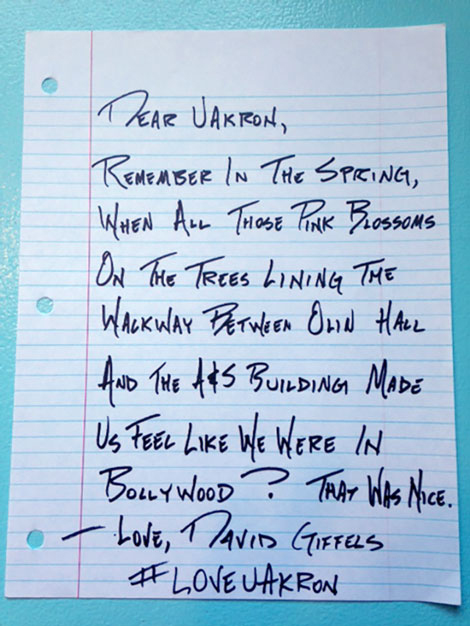 Dear UAkron,
Remember In The Spring,
When All Those Pink Blossoms
On The Trees Lining The
Walkway Between Olin Hall
And The A&S Building Made
Us Feel Like We Were In
Bollywood? That Was Nice.
— Love, David Giffels
#LOVEUAKRON